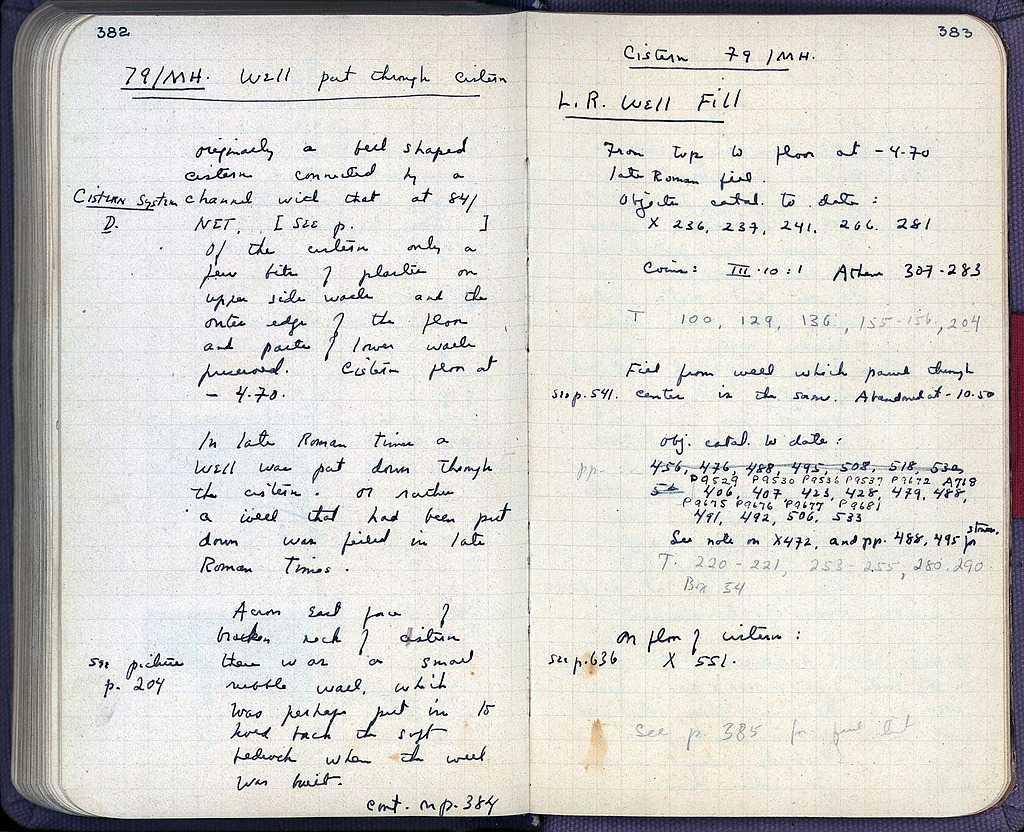 382
79/MH. Well put through cistern
originally a bell shaped
cistern connected by a
Cistern System channel with that at 84/
D. NET. [See p. ]
Of the cistern only a
few bits of plaster on
upper side walls and the
outer edge of the floor
and parts of lower walls
preserved. Cistern floor at
- 4.70.
In late Roman times a
well was put down through
the cistern. or rather
a well that had been put
down was filled in late
Roman Times.
Across East face of
broken neck of cistern
see picture there was a small
p. 204 rubble wall, which
was perhaps put in to
hold back the soft
bedrock when the well
was built.
cont. on p. 384
383
Cistern 79/MH.
L.R. Well Fill
From top to floor at -4.70
late Roman fill.
Objects catal. to date:
X 236, 237, 241, 266. 281
Coins: III-10:1 Athen 307-283
T 100, 129, 136, 155-156, 204
Fill from well which passed through
see p. 541. center is the same. Abandoned at -10.50
Obj. catal. to date:
pp. 456, 476, 488, 495, 508, 518, 530
P9529 P9530 P9536 P9537 P9672 A718
406, 407 423, 428, 479, 488,
P9675 P9676 P9677 P9681
491, 492, 506, 533
See note on X472, and pp. 488, 495 for stones.
T. 220-221, 253-255, 280.290.
Bx 34
On floor of cistern:
see p. 636 X 551.
See p 385 for full list